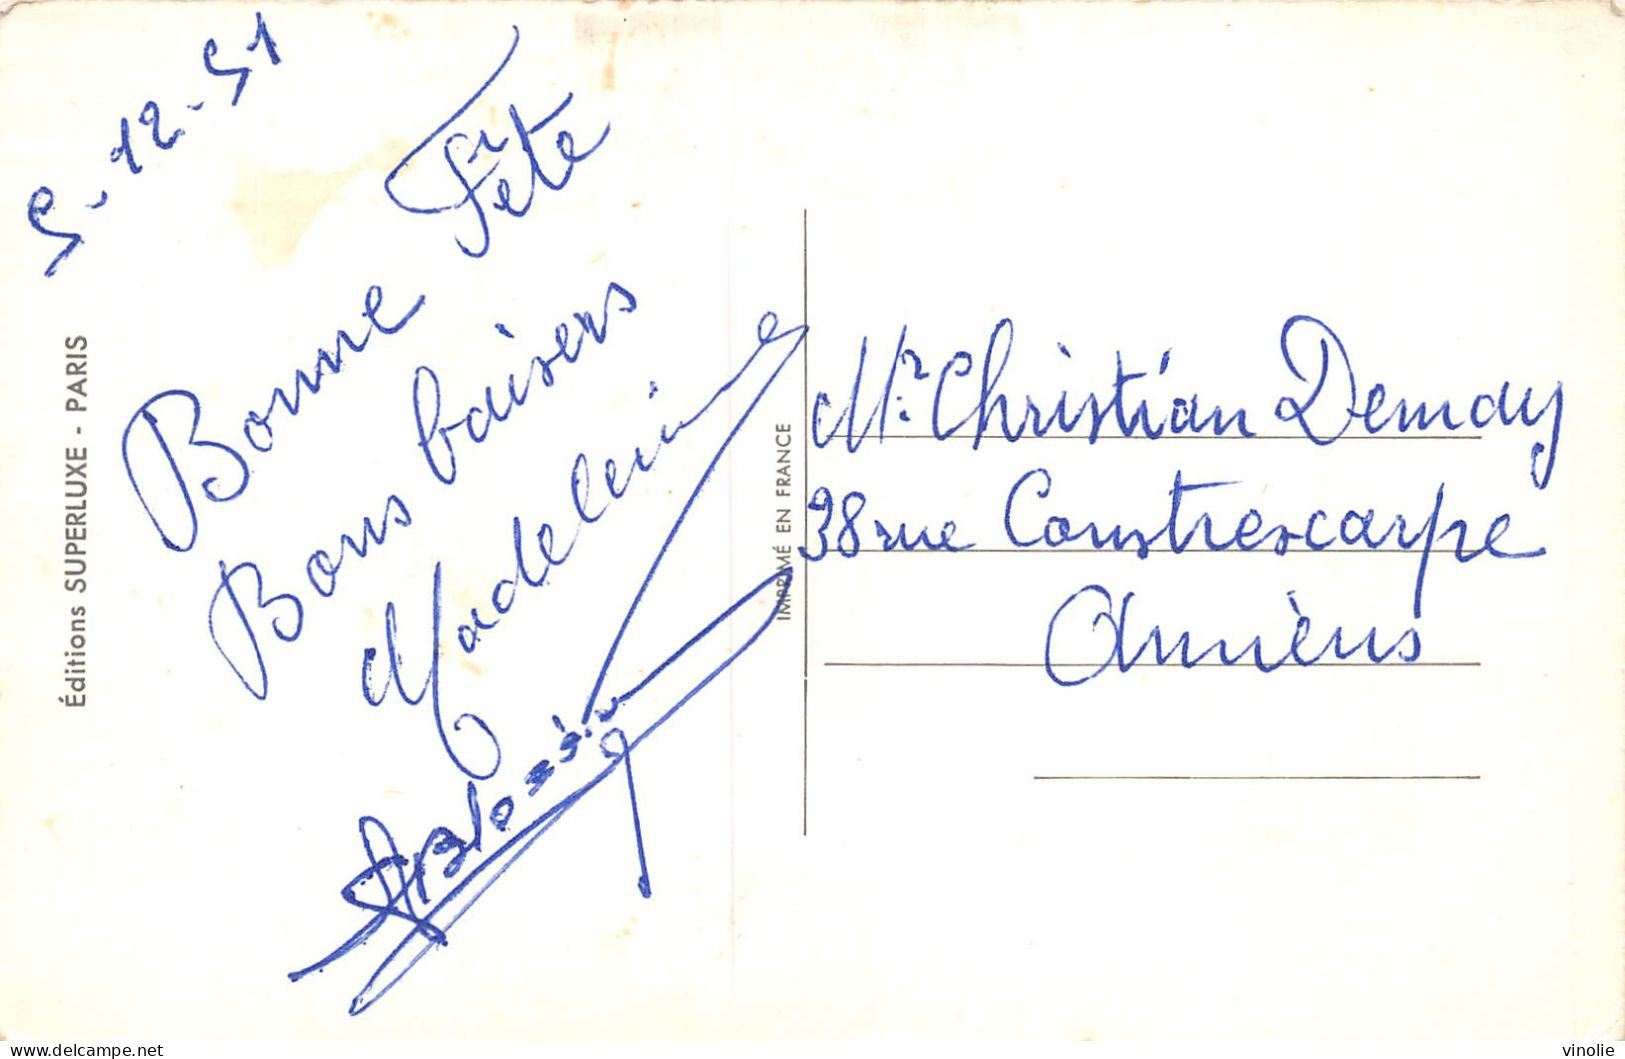 5-12-51
Bonne Fête
Bons baisers
Madeleine
Éditions SUPERLUXE - PARIS
IMPRIMÉ EN FRANCE
Mr. Christian Demay
38 rue Constrescarpe
Amièns
delcampe.net
vinolie